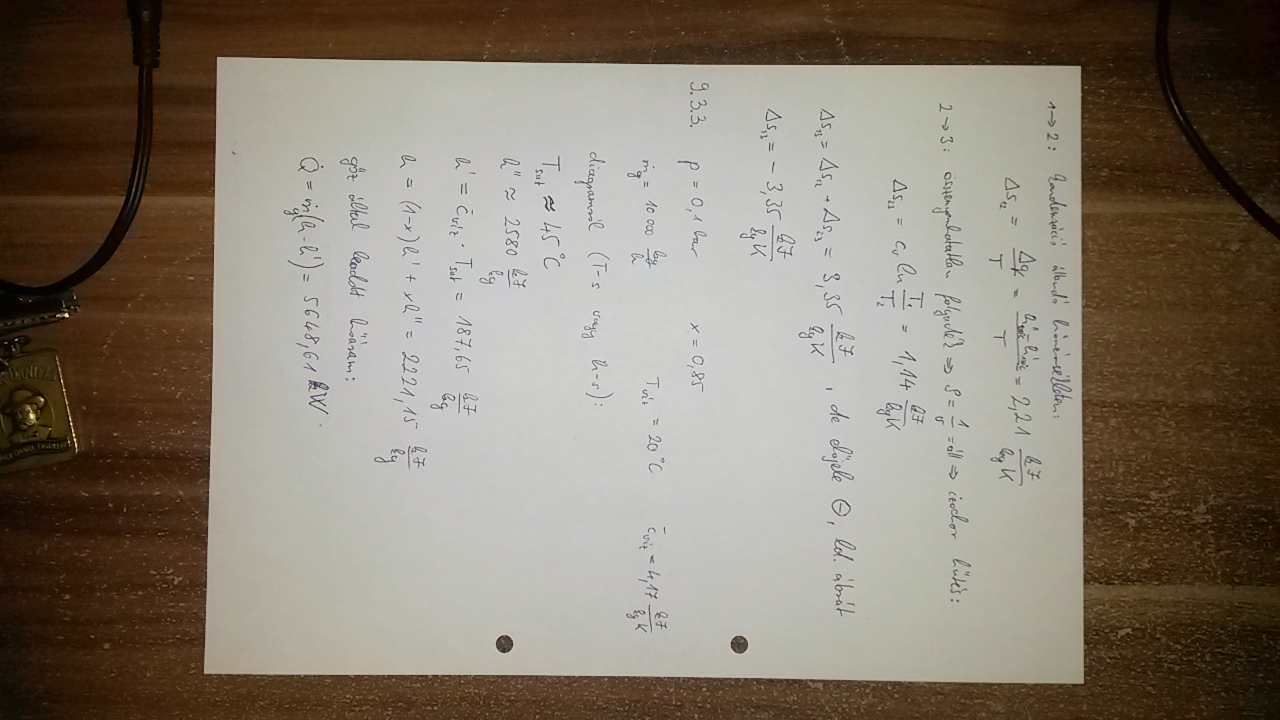 1→2: kondenzáció állandó hőmérsékleten:
Δs₁₂ = Δq/T = /T = 2,21 kJ/kgK
2→3: összenyomhatatlan folyadék ⇒ ρ = 1/v = áll ⇒ izochor hűtés:
Δs₂₃ = cᵥ ln T₁/T₂ = 1,14 kJ/kgK
Δs₁₃ = Δs₁₂ + Δs₂₃ = 3,35 kJ/kgK, de előjele ⊖, ld. ábrát
Δs₁₃ = − 3,35 kJ/kgK
9.3.3. p = 0,1 bar x = 0,85
ṁg = 10 000 kg/h Tvíz = 20 °C c̄víz = 4,17 kJ/kgK
diagramról (T-s vagy h-s):
Tsat ≈ 45 °C
h'' ≈ 2580 kJ/kg
h' = c̄víz · Tsat = 187,65 kJ/kg
h = (1-x)h' + xh'' = 2221,15 kJ/kg
gőz által leadott hőáram:
Q̇ = ṁg(h-h') = 5648,61 kW.